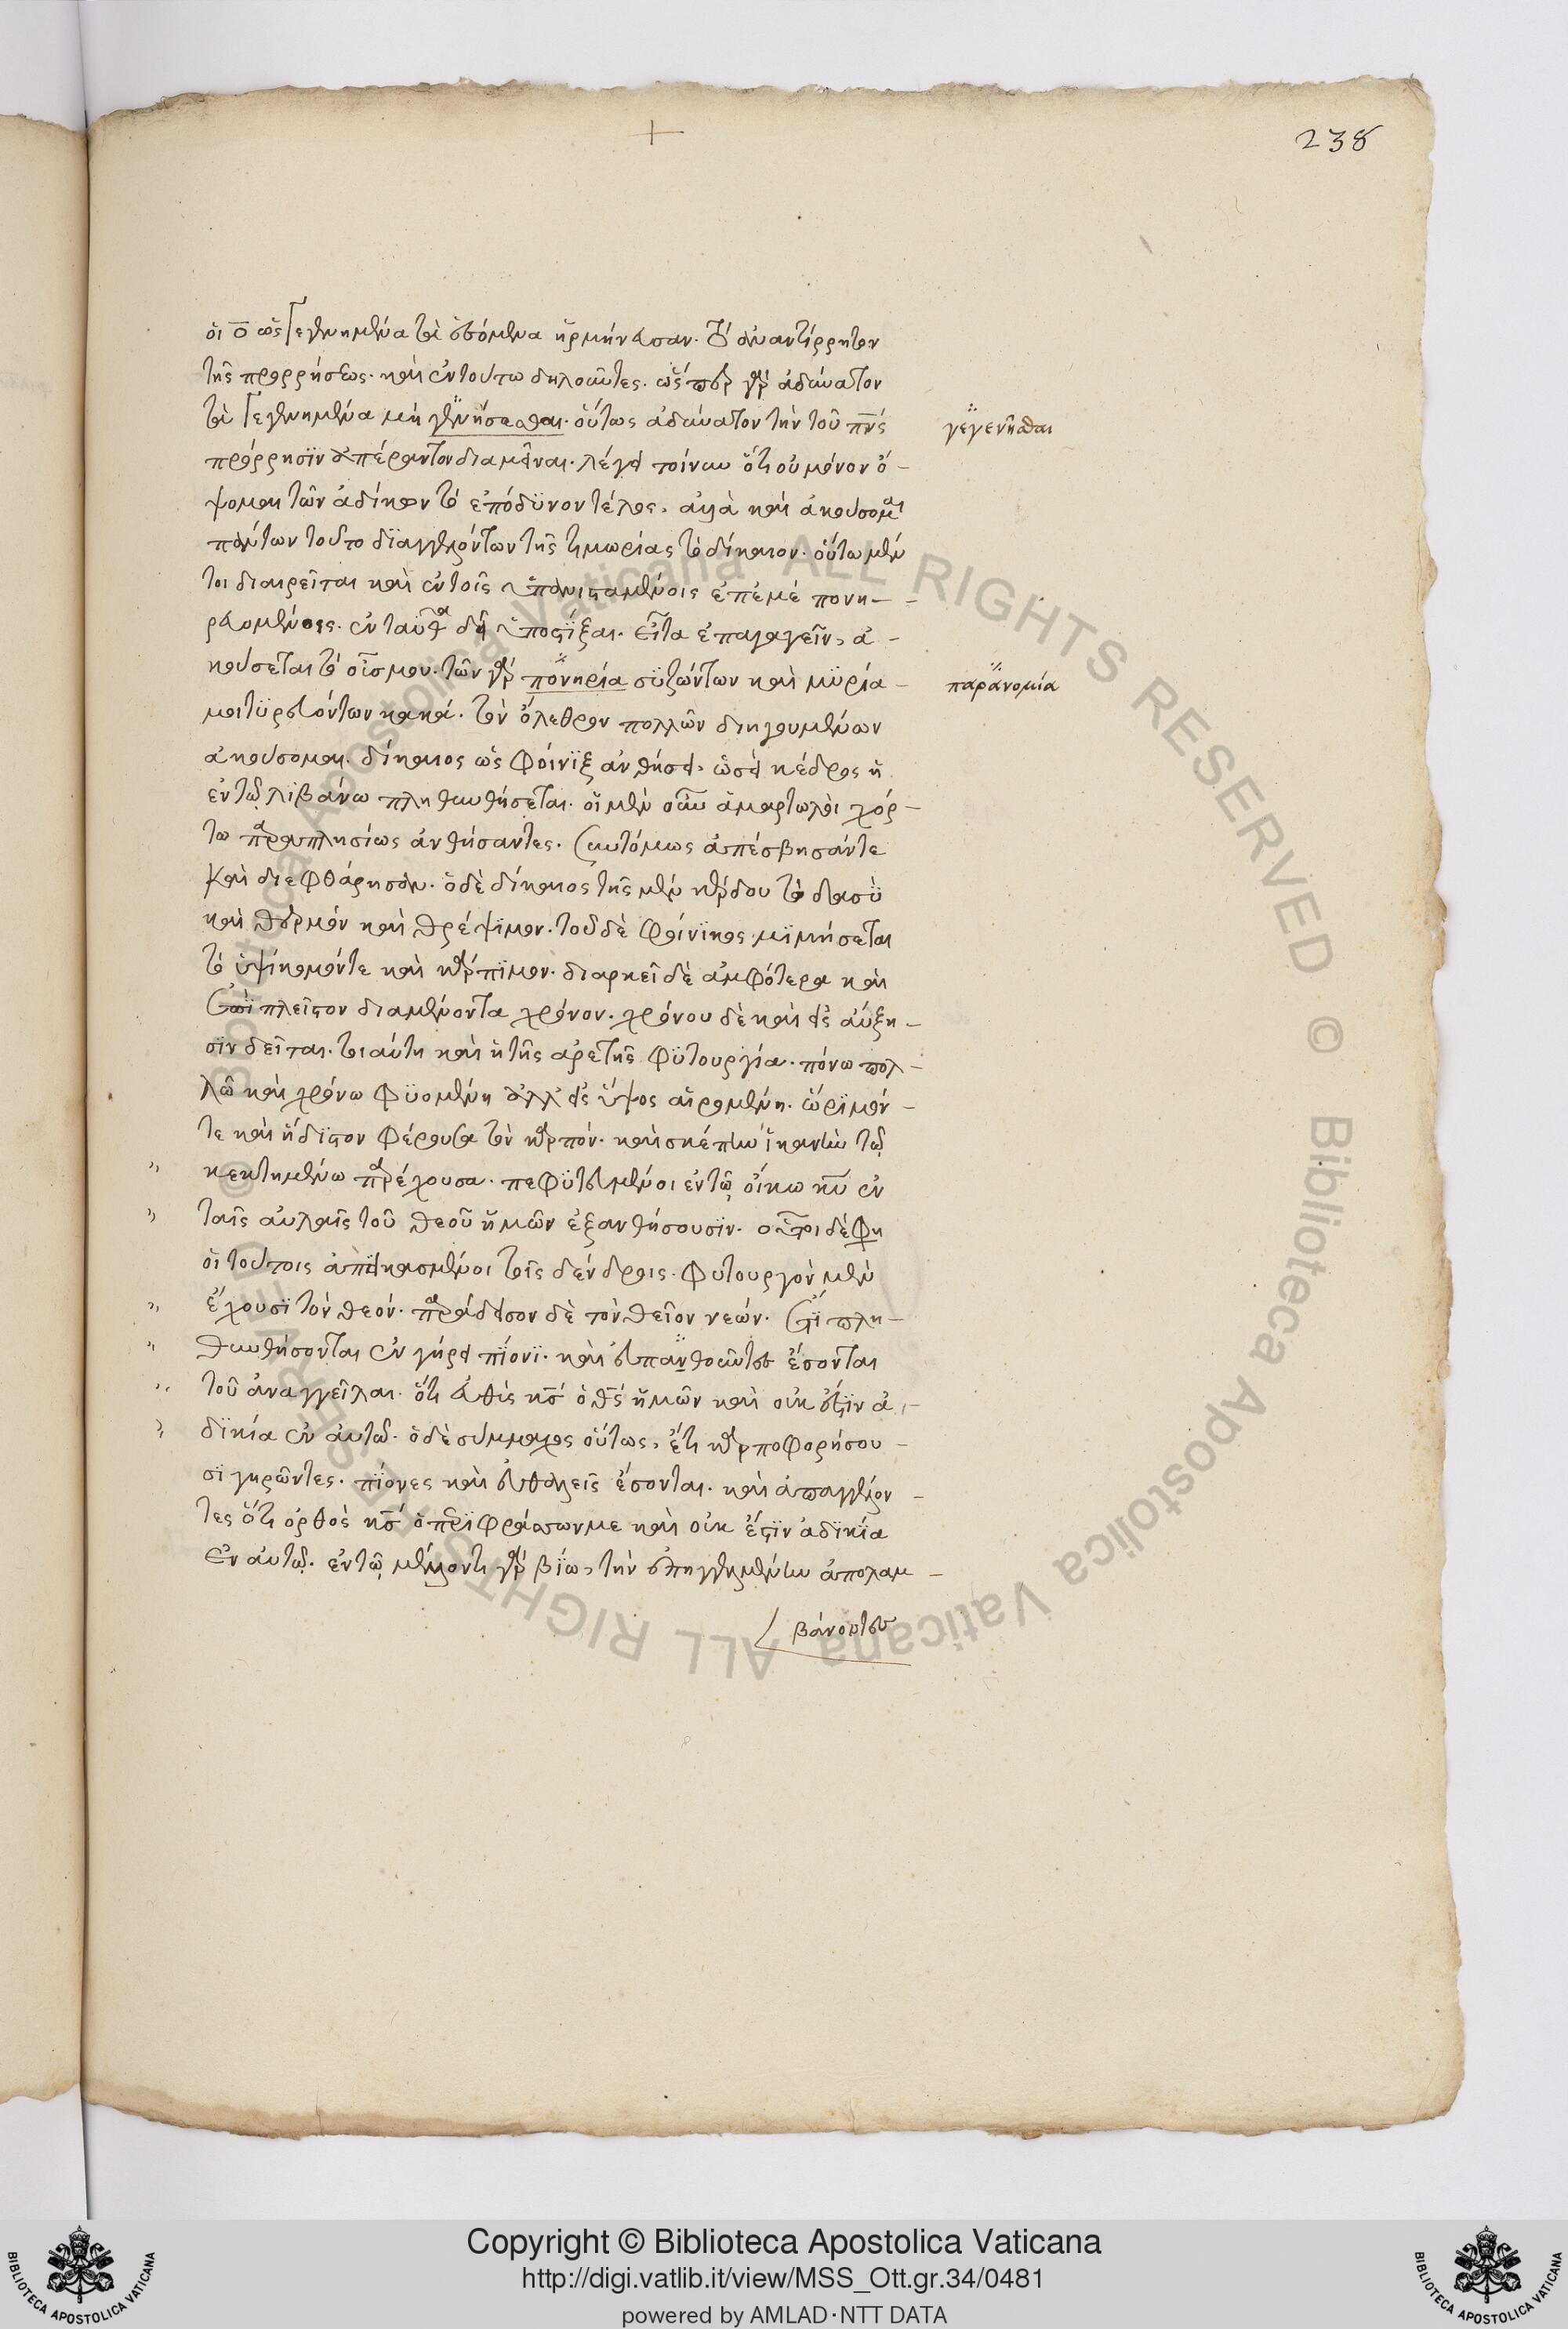 238
οἱ ο̄ ὡς γεγενημένα τὰ ἐσόμενα ἡρμήνευσαν. τὸ ἀναντίρρητον
τῆς προρρήσεως. καὶ ἐν τούτω δηλοῦντες. ὥσπερ γὰρ ἀδύνατον
τὰ γεγενημένα μὴ γενήσεσθαι. οὕτως ἀδύνατον τὴν τοῦ πν̅ς
γεγενῆσθαι
πρόρρησϊν ἀπέραντον διαμεῖναι. λέγει τοίνυν ὅτι οὐ μόνον ὄ-
ψομαι τῶν ἀδίκων τὸ ἐπόδϋνον τέλος, ἀλλὰ καὶ ἀκούσομαι
πάντων τοῦτο δϊαγγελόντων τῆς τιμωρίας τὸ δίκαιον. οὕτω μέν
τοι διαιρεῖται καὶ ἐν τοῖς ἐπανισταμένοις ἐπ' ἐμὲ πονη-
ρευομένοις. ἐνταῦθα δεῖ ὑποστίξαι. εἶτα ἐπαγαγεῖν, ἀ-
κούσεται τὸ οὖς μου. τῶν γὰρ πονηρία συζώντων καὶ μϋρία
παρανομία
μοι τϋρευόντων κακά. τὸν ὄλεθρον πολλῶν διηγουμένων
ἀκούσομαι. δίκαιος ὡς φοίνϊξ ἀνθήσει. ὡσεὶ κέδρος ἡ
ἐν τῷ λιβάνω πληθυνθήσεται. οἱ μὲν οὖν ἁμαρτωλοὶ χόρ-
τω παραπλησίως ἀνθήσαντες. συντόμως ἀπέσβησάν τε
καὶ διεφθάρησαν. ὁ δὲ δίκαιος τῆς μὲν κέδρου τὸ δασὺ
καὶ θερμὸν καὶ θρέψϊμον. τοῦ δὲ φοίνϊκος μϊμήσεται
τὸ ὑψίκομόν τε καὶ κάρπϊμον. διαρκεῖ δὲ ἀμφότερα καὶ
ἐπὶ πλεῖστον διαμένοντα χρόνον. χρόνου δὲ καὶ εἰς αὔξη-
σϊν δεῖται. τοιαύτη καὶ ἡ τῆς ἀρετῆς φϋτουργία. πόνω πολ-
λῶ καὶ χρόνω φϋομένη ἀλλ' εἰς ὕψος αἰρομένη. ὥρϊμόν
τε καὶ ἥδϊστον φέρουσα τὸν καρπόν. καὶ σκέπην ἱκανὴν τῷ
κεκτημένω παρέχουσα. πεφϋτευμένοι ἐν τῷ οἴκω κυ̅ ἐν
ταῖς αὐλαῖς τοῦ θεοῦ ἡμῶν ἐξανθήσουσϊν.
οἱ τούτοις ἀπεικασμένοι τοῖς δένδροις. φυτουργὸν μὲν
ἔχουσϊ τὸν θεόν. παράδεισον δὲ τὸν θεῖον νεών. ἔτι πλη-
θυνθήσονται ἐν γήρει πίονϊ. καὶ εὐπαθοῦντες ἔσονται
τοῦ ἀναγγεῖλαι. ὅτι εὐθὺς κς̅ ὁ θς̅ ἡμῶν καὶ οὐκ ἔστϊν ἀ-
δϊκία ἐν αὐτῶ. ὁ δὲ σύμμαχος οὕτως, ἔτι καρποφορήσου-
σϊ γηρῶντες. πίονες καὶ εὐθαλεῖς ἔσονται. καὶ ἀπαγγέλον-
τες ὅτι ὀρθὸς κς̅ ὁ περϊφράσσων με καὶ οὐκ ἔστϊν ἀδϊκία
ἐν αὐτῷ. ἐν τῷ μέλλοντι γὰρ βίω, τὴν ἐπηγγελμένην ἀπολαμ-
βάνοντες
Copyright © Biblioteca Apostolica Vaticana
http://digi.vatlib.it/view/MSS_Ott.gr.34/0481
powered by AMLAD·NTT DATA